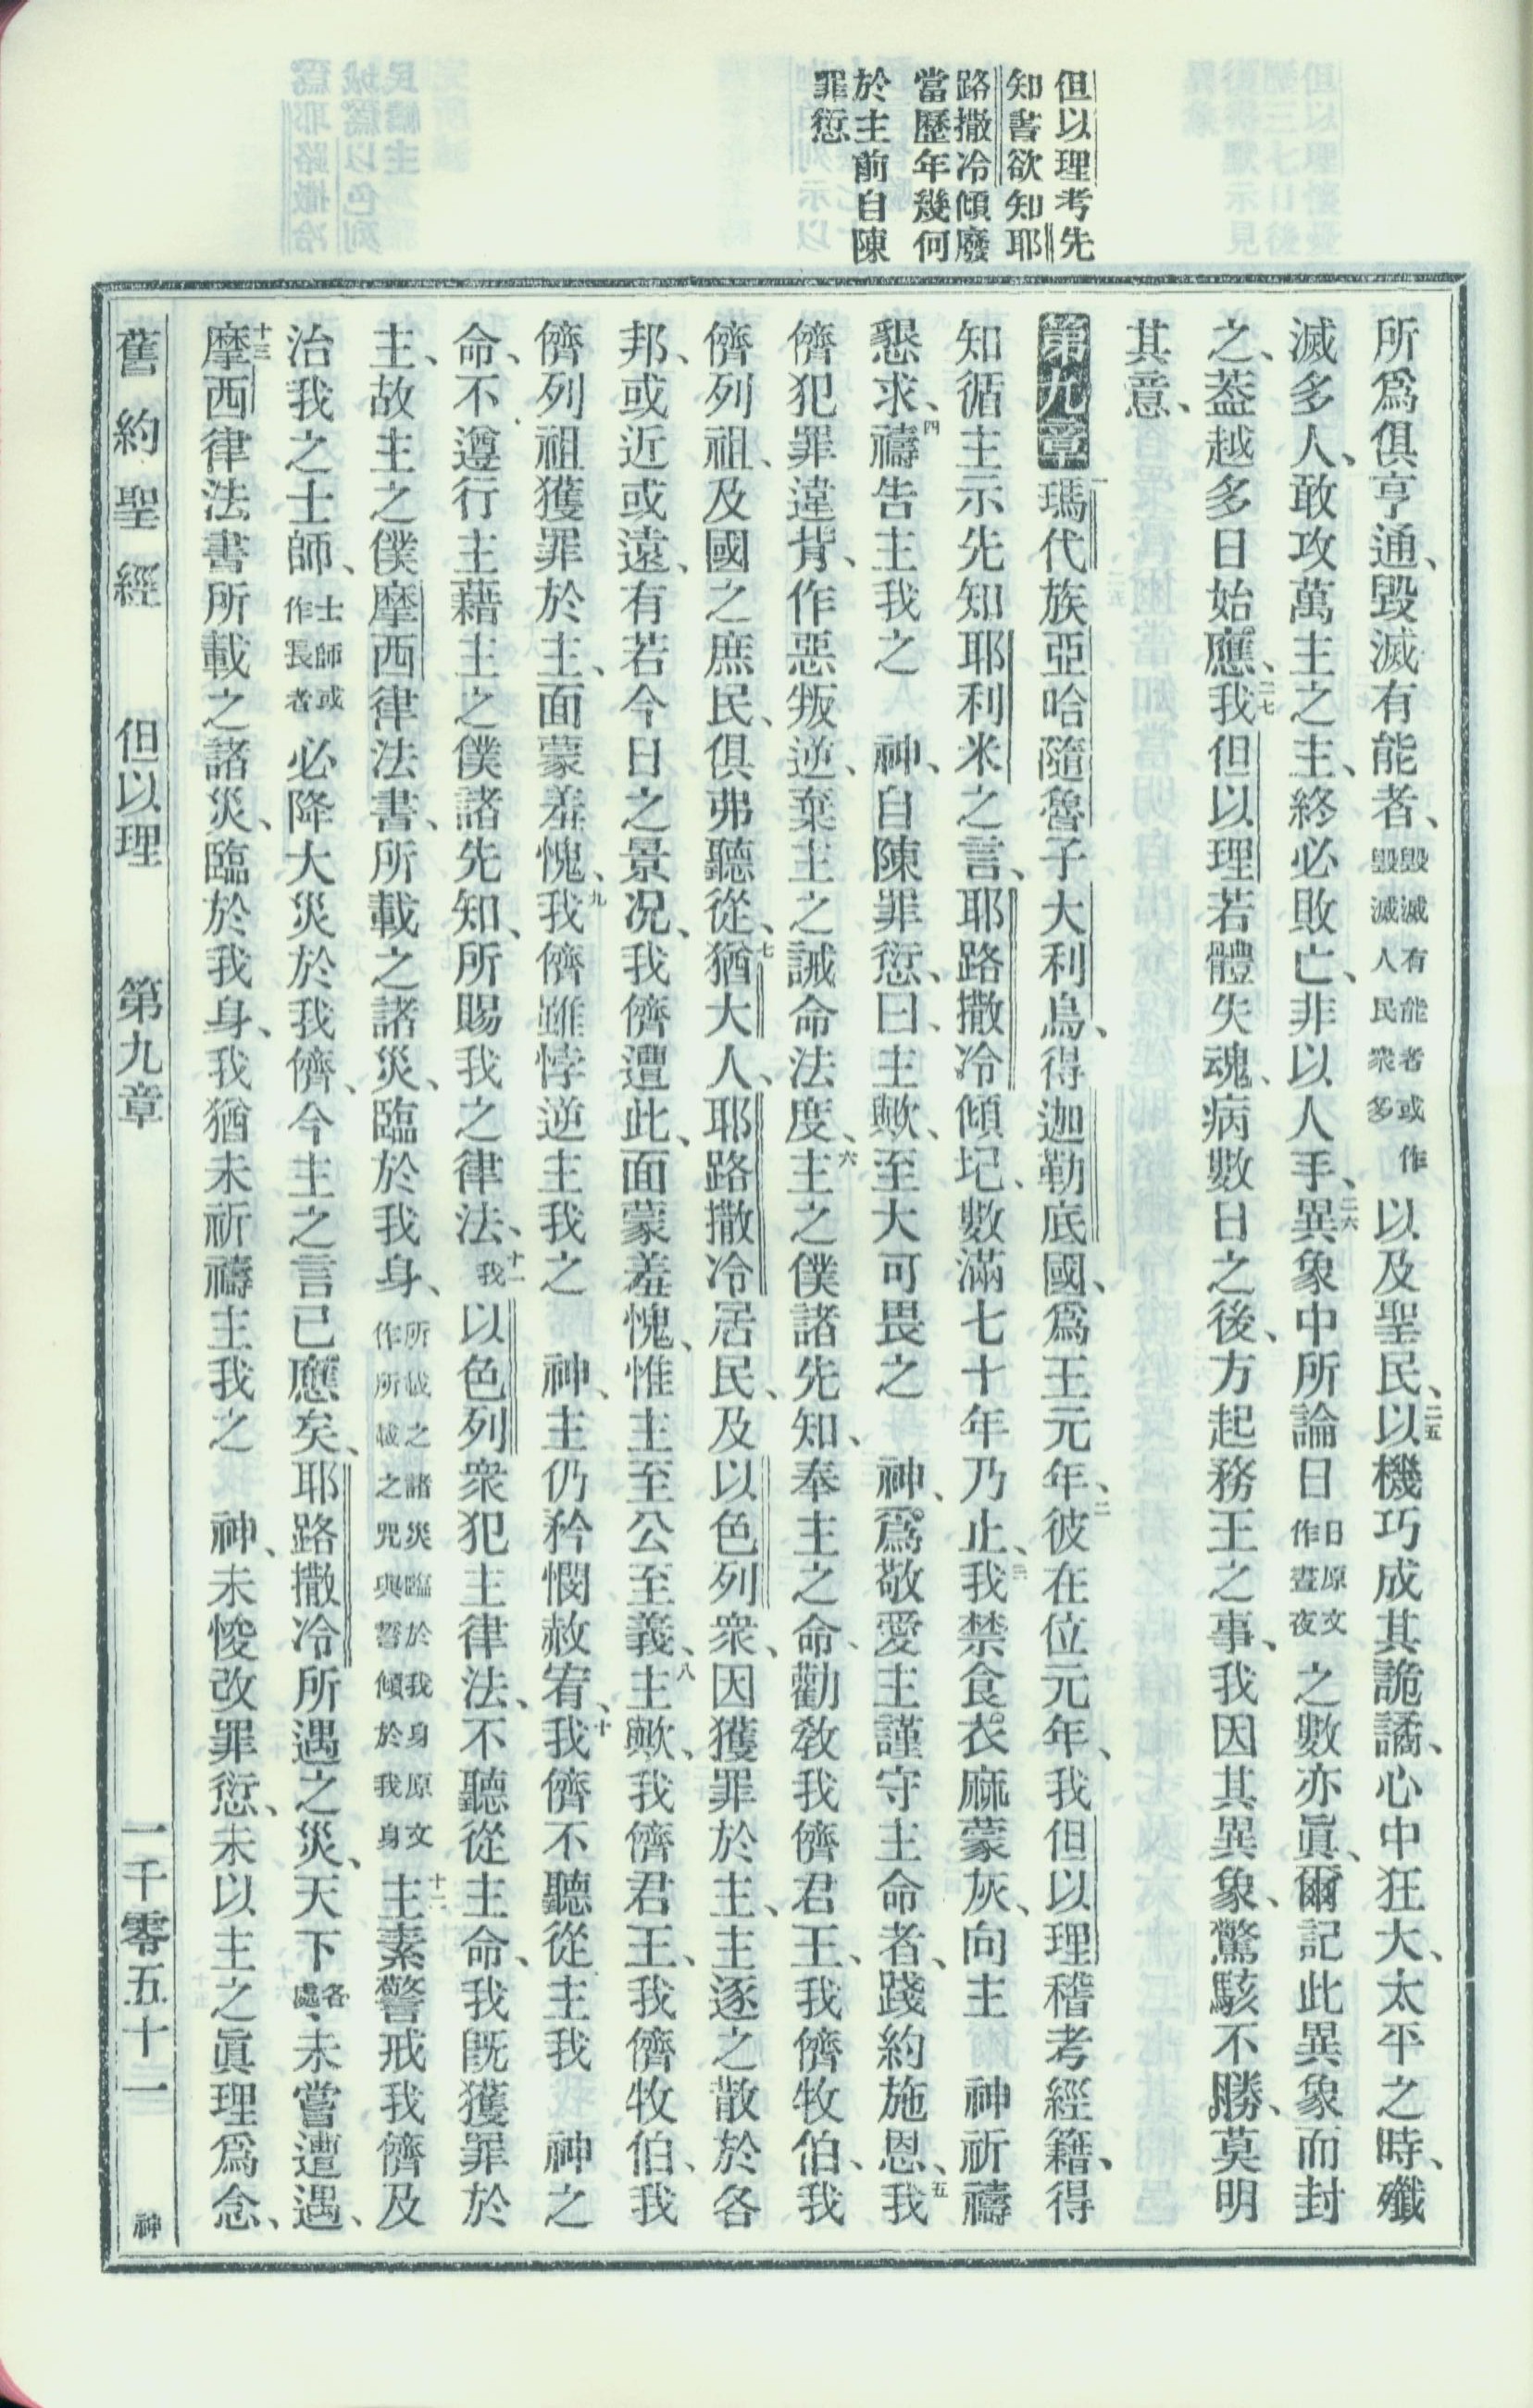 但以理考先
知書欲知耶
路撒冷傾廢
當歷年幾何
於主前自陳
罪愆
所爲俱亨通、毀滅有能者、毀滅有能者或作毀滅人民衆多以及聖民、二五以機巧成其詭譎、心中狂大、太平之時、殲
滅多人、敢攻萬主之主、終必敗亡、非以人手、二六異象中所論日日原文作晝夜之數亦眞、爾記此異象而封
之、葢越多日始應、二七我但以理若體失魂、病數日之後、方起務王之事、我因其異象、驚駭不勝、莫明
其意、
第九章一瑪代族亞哈隨魯子大利烏、得迦勒底國、爲王元年、二彼在位元年、我但以理稽考經籍、得
知循主示先知耶利米之言、耶路撒冷傾圮、數滿七十年乃止、三我禁食衣麻蒙灰、向主 神祈禱
懇求、四禱告主我之 神、自陳罪愆、曰、主歟、至大可畏之 神、爲敬愛主謹守主命者、踐約施恩、五我
儕犯罪違背、作惡叛逆、棄主之誡命法度、六主之僕諸先知、奉主之命、勸敎我儕君王、我儕牧伯、我
儕列祖、及國之庶民、俱弗聽從、七猶大人、耶路撒冷居民、及以色列衆、因獲罪於主、主逐之散於各
邦、或近或遠、有若今日之景况、我儕遭此、面蒙羞愧、惟主至公至義、八主歟、我儕君王、我儕牧伯、我
儕列祖獲罪於主、面蒙羞愧、九我儕雖悖逆主我之 神、主仍矜憫赦宥、十我儕不聽從主我 神之
命、不遵行主藉主之僕諸先知、所賜我之律法、十一我以色列衆犯主律法、不聽從主命、我旣獲罪於
主、故主之僕摩西律法書、所載之諸災、臨於我身、所載之諸災臨於我身原文作所載之咒與誓傾於我身十二主素警戒我儕及
治我之士師、士師或作長者必降大災於我儕、今主之言已應矣、耶路撒冷所遇之災、天下各處、未嘗遭遇、
十三摩西律法書所載之諸災、臨於我身、我猶未祈禱主我之 神、未悛改罪愆、未以主之眞理爲念、
舊約聖經 但以理 第九章 一千零五十一 神